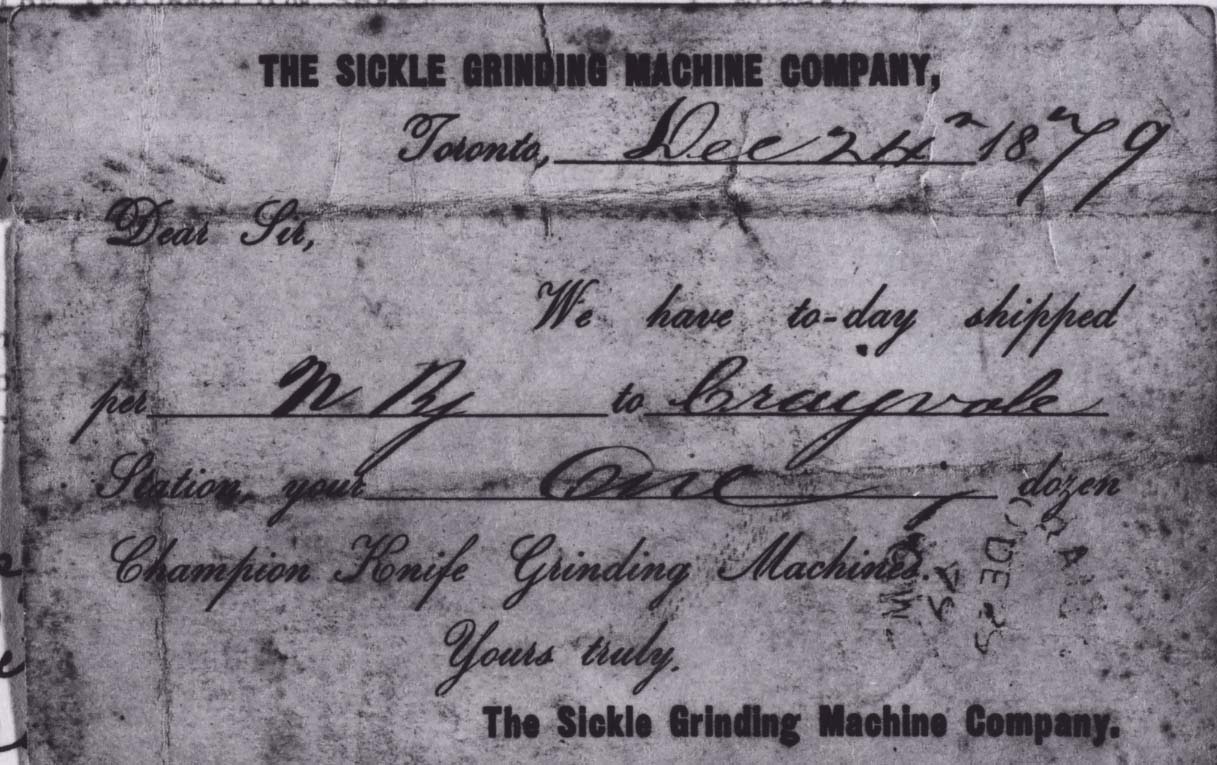 THE SICKLE GRINDING MACHINE COMPANY,
Toronto, Dec 24 1879
Dear Sir,
We have to-day shipped
per N Ry to Craigvale
Station, your One dozen
Champion Knife Grinding Machines.
Yours truly,
The Sickle Grinding Machine Company.